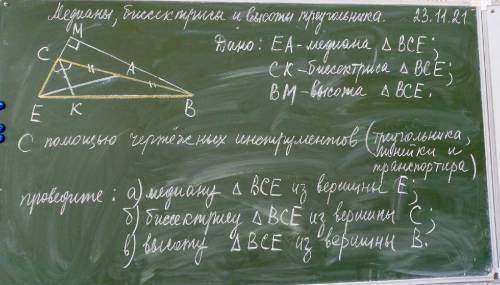 Медианы, биссектрисы и высоты треугольника. 23.11.21
M
C
A
E
K
B
Дано: EA-медиана △BCE;
CK-биссектриса △BCE;
BM-высота △BCE.
С помощью чертёжных инструментов (треугольника, линейки и транспортира)
проведите: а) медиану △BCE из вершины E;
б) биссектрису △BCE из вершины C;
в) высоту △BCE из вершины B.